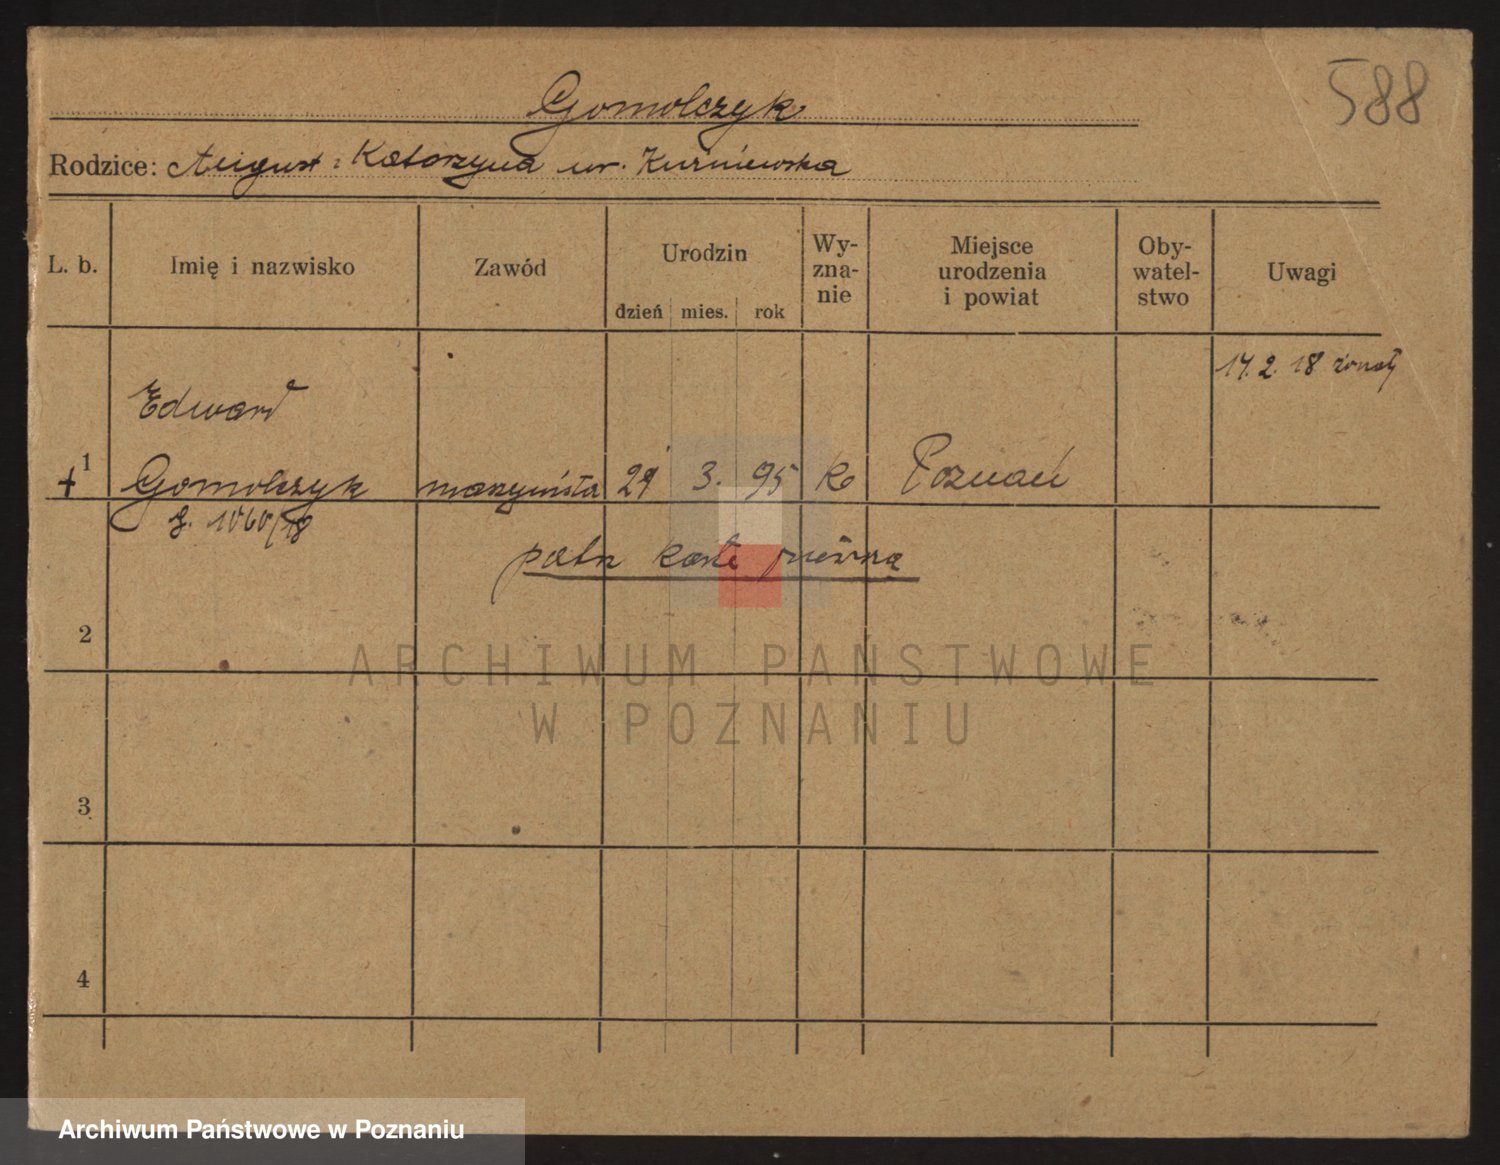 588
Gomolczyk
Rodzice: August i Katarzyna ur. Kuśniewska
L. b.
Imię i nazwisko
Zawód
Urodzin
dzień
mies.
rok
Wy-
zna-
nie
Miejsce
urodzenia
i powiat
Oby-
watel-
stwo
Uwagi
14. 2. 18 żonaty
Edward
+ 1 Gomolczyk maszynista 29 3. 95 k Poznań
1060/18
patrz kartę
2
ARCHIWUM PAŃSTWOWE
W POZNANIU
3
4
Archiwum Państwowe w Poznaniu